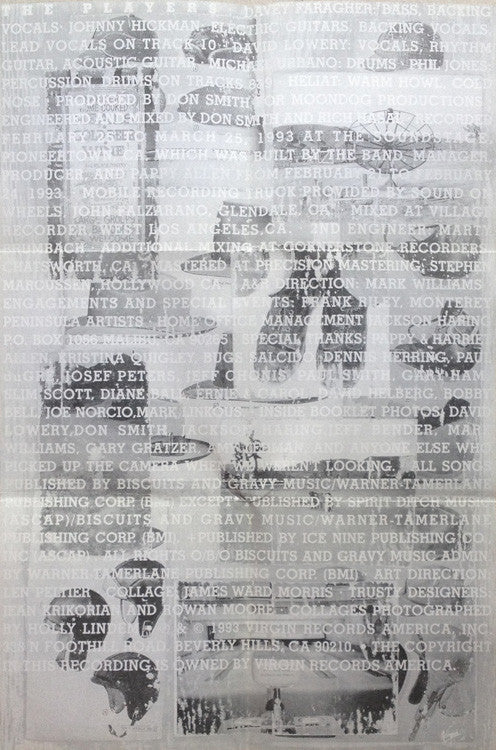 THE PLAYERS DAVEY FARAGHER: BASS, BACKING
VOCALS· JOHNNY HICKMAN: ELECTRIC GUITARS, BACKING VOCALS,
LEAD VOCALS ON TRACK 10· DAVID LOWERY: VOCALS, RHYTHM
GUITAR, ACOUSTIC GUITAR· MICHAEL URBANO: DRUMS· PHIL JONES:
PERCUSSION, DRUMS ON TRACKS 3&9· HELIAT: WARM HOWL, COLD
NOSE· PRODUCED BY DON SMITH FOR MOONDOG PRODUCTIONS
ENGINEERED AND MIXED BY DON SMITH AND RICH HASAL· RECORDED
FEBRUARY 25 TO MARCH 25, 1993 AT THE SOUNDSTAGE,
PIONEERTOWN, CA, WHICH WAS BUILT BY THE BAND, MANAGER,
PRODUCER, AND PAPPY ALLEN FROM FEBRUARY TO FEBRUARY
24, 1993. MOBILE RECORDING TRUCK PROVIDED BY SOUND ON
WHEELS, JOHN FALZARANO, GLENDALE, CA.· MIXED AT VILLAGE
RECORDER, WEST LOS ANGELES, CA.· 2ND ENGINEER:
ADDITIONAL MIXING AT CORNERSTONE RECORDERS,
CHATSWORTH, CA· MASTERED AT PRECISION MASTERING: STEPHEN
MARCUSSEN, HOLLYWOOD CA· A&R DIRECTION: MARK WILLIAMS
ENGAGEMENTS AND SPECIAL EVENTS: FRANK RILEY, MONTEREY
PENINSULA ARTISTS· HOME OFFICE MANAGEMENT JACKSON HARING
P.O. BOX 1056 MALIBU CA 90265· SPECIAL THANKS: PAPPY & HARRIET
ALLEN, KRISTINA QUIGLEY, BUGS SALCIDO, DENNIS HERRING, PAUL
JOSEF PETERS, JEFF CHONIS, JULIE SMITH, GARY HAM,
SLIM SCOTT, DIANE BALL, ERNIE DAVID HELBERG, ROBBIE
JOE NORCIO, MARK LINKOUS· INSIDE BOOKLET PHOTOS: DAVID
LOWERY, DON SMITH, JACKSON HARING, JEFF BENDER, MARK
WILLIAMS, GARY GRATZER, ANYONE ELSE WHO
PICKED UP THE CAMERA WHEN WE WEREN'T LOOKING. ALL SONGS
PUBLISHED BY BISCUITS AND GRAVY MUSIC/WARNER-TAMERLANE
PUBLISHING CORP. (BMI), EXCEPT PUBLISHED BY SPIRIT DITCH MUSIC
(ASCAP)/BISCUITS AND GRAVY MUSIC/WARNER-TAMERLANE
PUBLISHING CORP. (BMI), +PUBLISHED BY ICE NINE PUBLISHING CO.
INC (ASCAP) ALL RIGHTS O/B/O BISCUITS AND GRAVY MUSIC ADMIN.
BY WARNER-TAMERLANE PUBLISHING CORP. (BMI). ART DIRECTION:
LEN PELTIER· COLLAGE: JAMES WARD MORRIS· TRUSTY DESIGNERS:
JEAN KRIKORIAN AND ROWAN MOORE· COLLAGES PHOTOGRAPHED
BY HOLLY LINDEM· © 1993 VIRGIN RECORDS AMERICA, INC.
338 N FOOTHILL ROAD, BEVERLY HILLS, CA 90210. THE COPYRIGHT
IN THIS RECORDING IS OWNED BY VIRGIN RECORDS AMERICA.